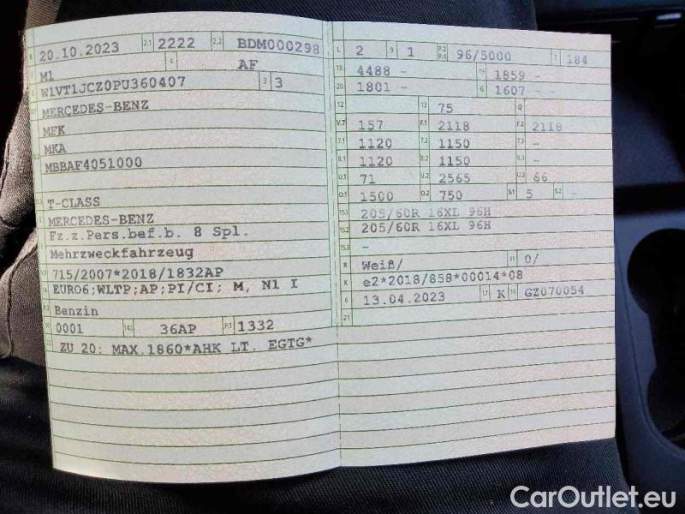 20.10.2023 2.1 2222 2.2 BDM000298
M1 AF
W1VT1JCZ0PU360407 3 3
MERCEDES-BENZ
MFK
MKA
MBBAF4051000
T-CLASS
MERCEDES-BENZ
Fz.z.Pers.bef.b. 8 Spl.
Mehrzweckfahrzeug
715/2007*2018/1832AP
EURO6;WLTP;AP;PI/CI; M, N1 I
Benzin
0001 36AP 1332
ZU 20: MAX.1860*AHK LT. EGTG*
L 2 9 1 P.2 P.4 96/5000 T 184
18 4488 - 19 1859 -
20 1801 - G 1607 -
12 13 75 Q
V.7 157 F.1 2118 F.2 2118
7.1 1120 7.2 1150 7.3 -
8.1 1120 8.2 1150 8.3 -
U.1 71 U.2 2565 U.3 66
O.1 1500 O.2 750 S.1 5 S.2 -
15.1 205/60R 16XL 96H
15.2 205/60R 16XL 96H
15.3 -
R Weiß/ 11 0/
K e2*2018/858*00014*08
6 13.04.2023 17 K 16 GZ070054
21
CarOutlet.eu